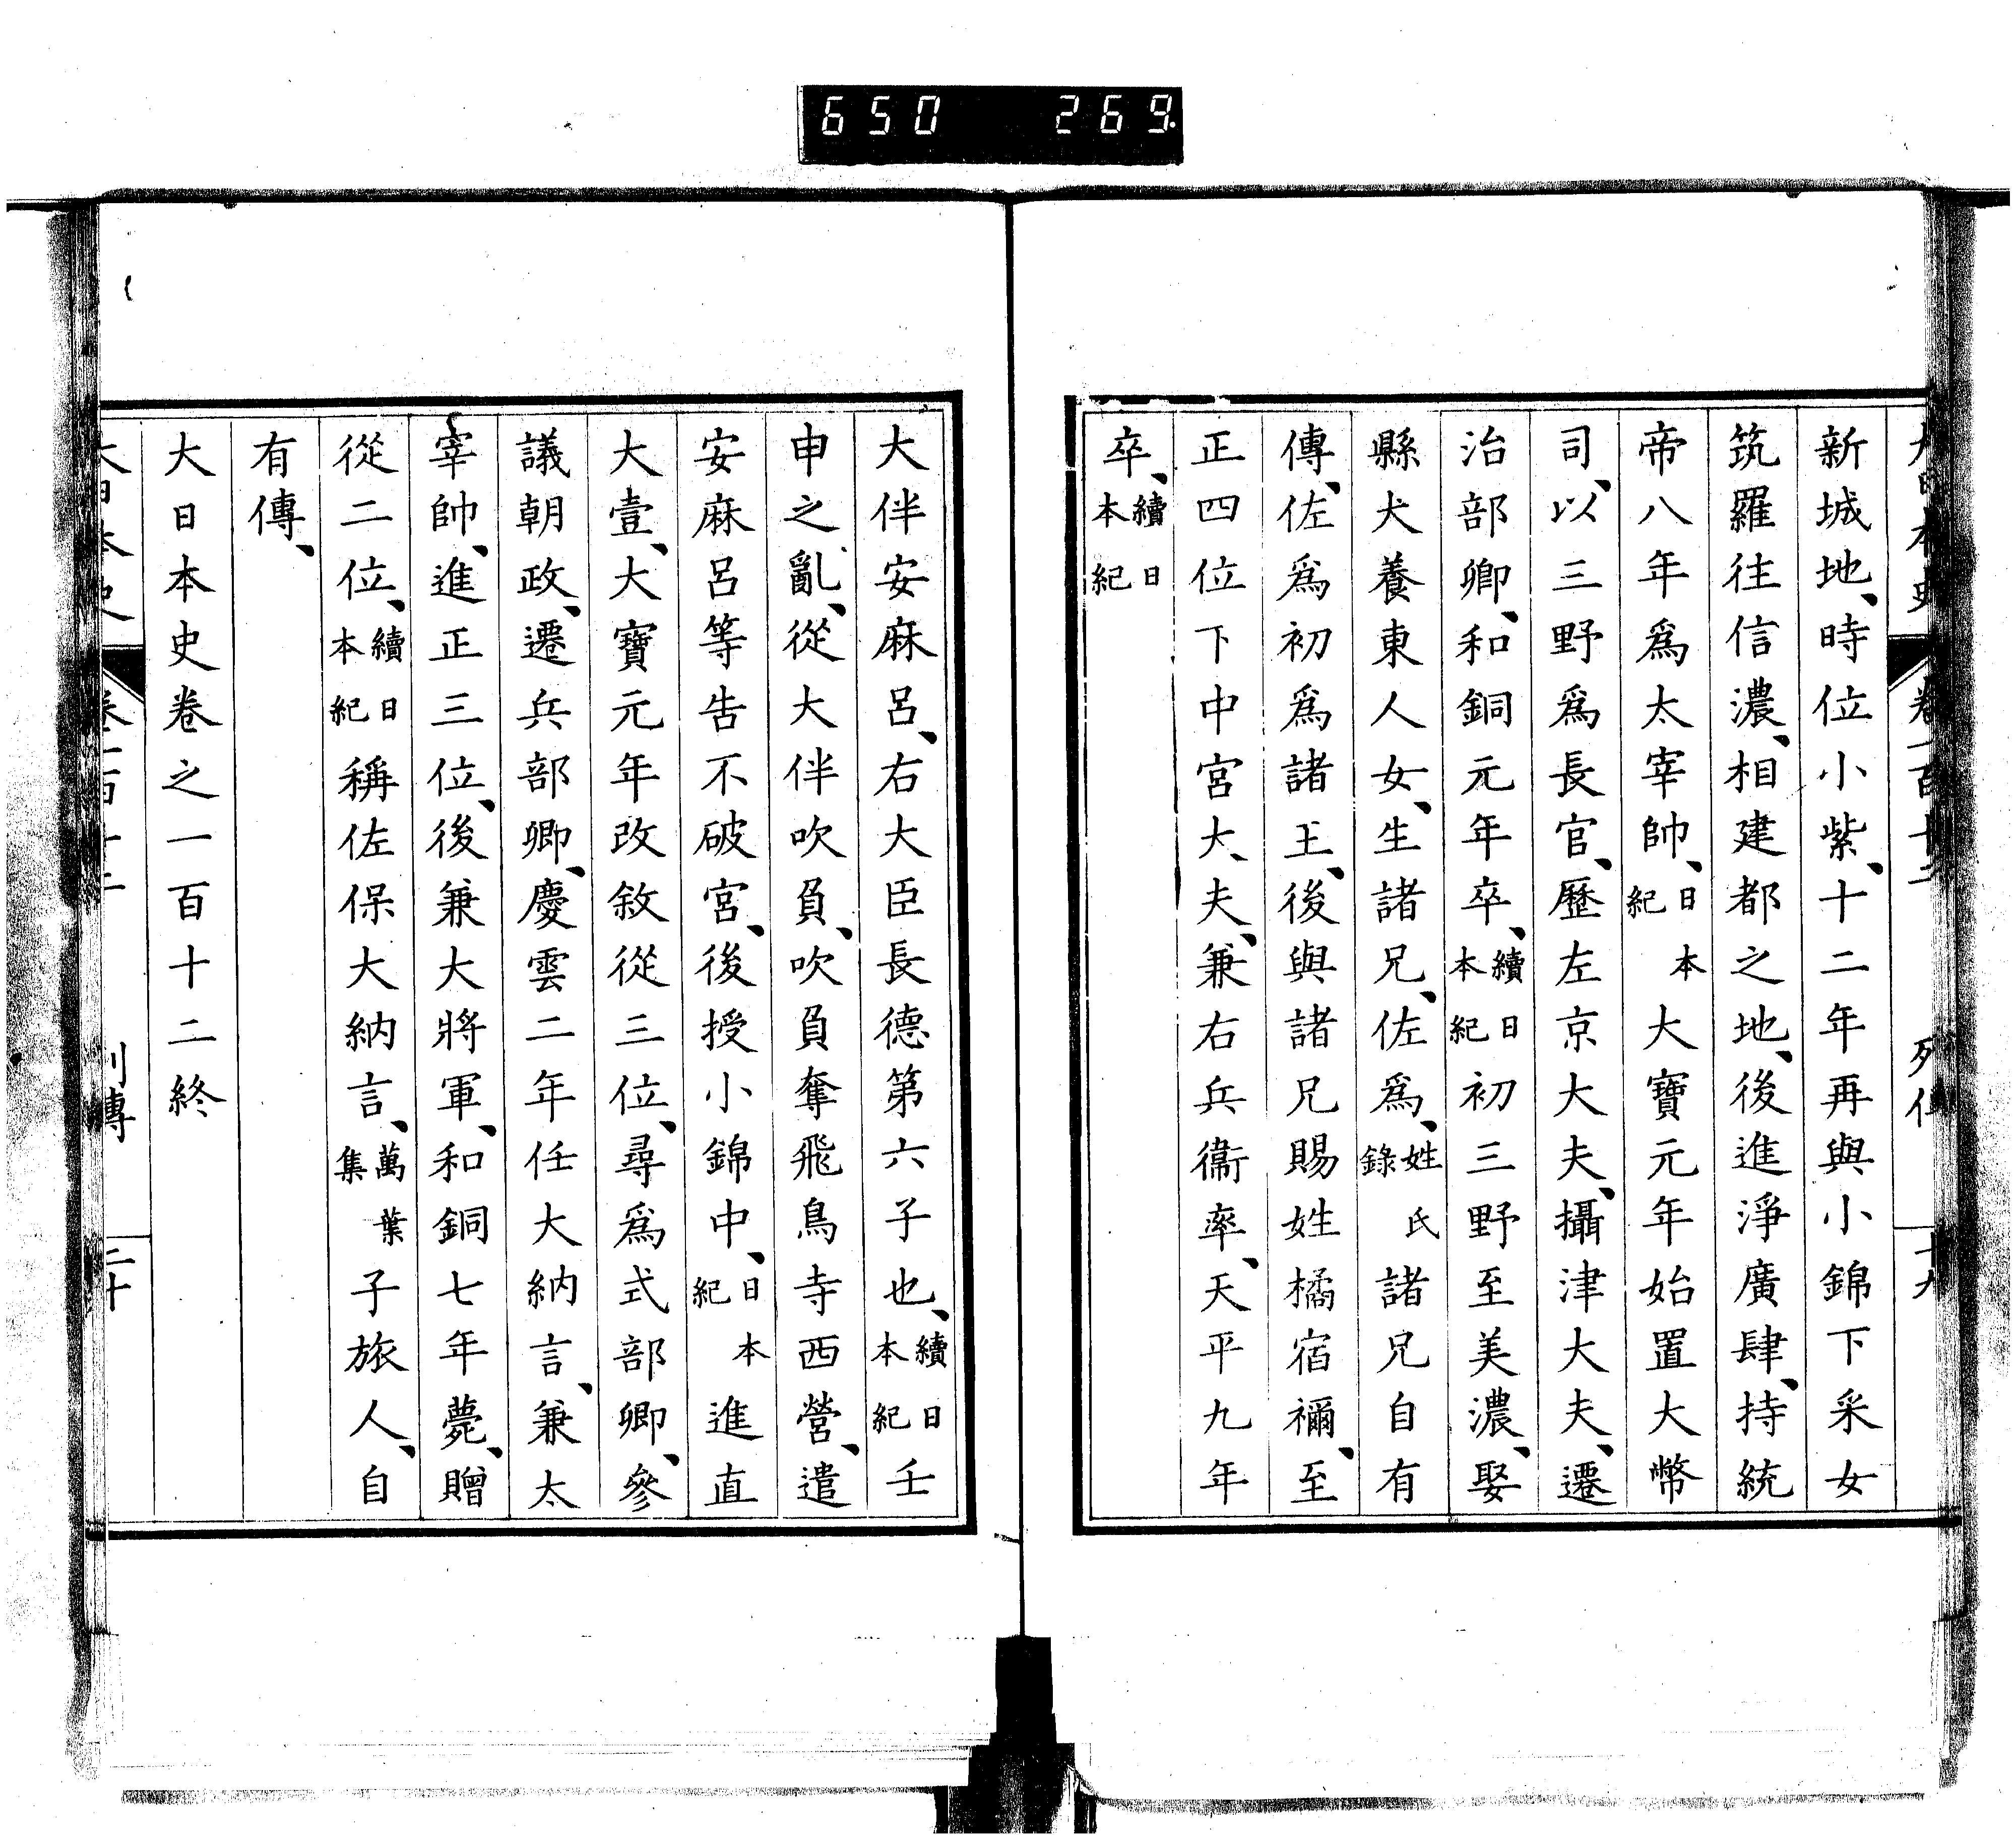 650 269.
大日本史 卷一百十二 列傳 十九
新城地、時位小紫、十二年再與小錦下采女
筑羅往信濃、相建都之地、後進淨廣肆、持統
帝八年爲太宰帥、日本紀大寶元年始置大幣
司、以三野爲長官、歷左京大夫、攝津大夫、遷
治部卿、和銅元年卒、續日本紀初三野至美濃、娶
縣犬養東人女、生諸兄、佐爲、姓氏錄諸兄自有
傳、佐爲初爲諸王、後與諸兄賜姓橘宿禰、至
正四位下中宮大夫、兼右兵衞率、天平九年
卒、續日本紀
大伴安麻呂、右大臣長德第六子也、續日本紀壬
申之亂、從大伴吹負、吹負奪飛鳥寺西營、遣
安麻呂等告不破宮、後授小錦中、日本紀進直
大壹、大寶元年改敘從三位、尋爲式部卿、參
議朝政、遷兵部卿、慶雲二年任大納言、兼太
宰帥、進正三位、後兼大將軍、和銅七年薨、贈
從二位、續日本紀稱佐保大納言、萬葉集子旅人、自
有傳、
大日本史卷之一百十二終
大日本史 卷一百十二 列傳 二十